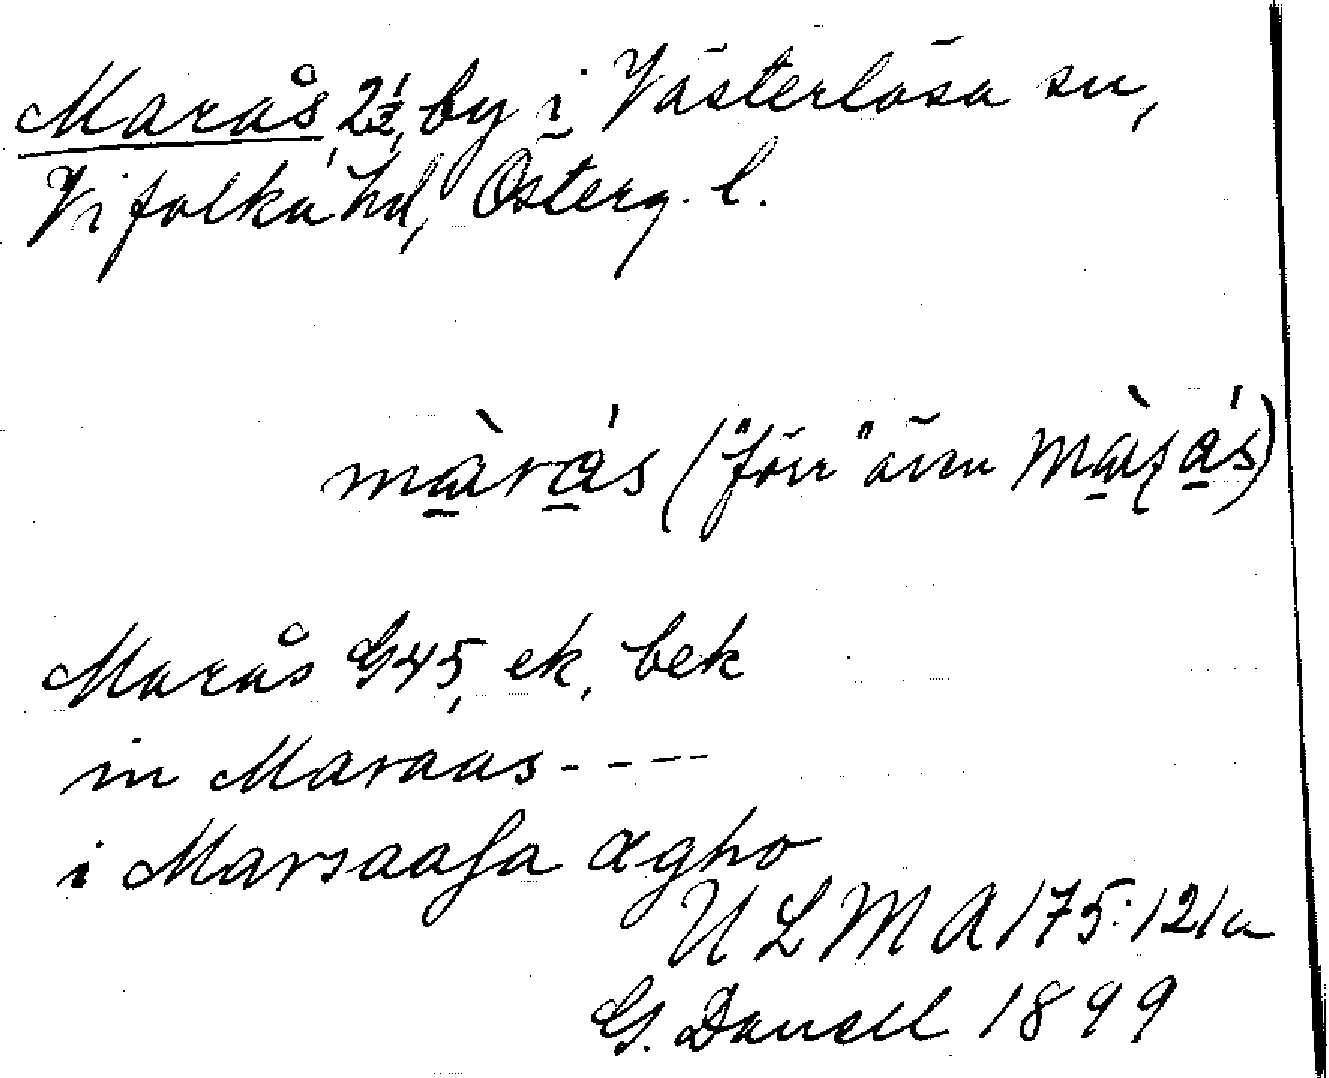 Marås, 2½, by i Västerlösa sn,
Vifolka hd, Österg. l.
màrás ("förr" även Màʃás)
Marås G45, ek, bek
in Maraas - - - -
i Marsaasa ægho
ULMA 175:121a
G. Danell 1899